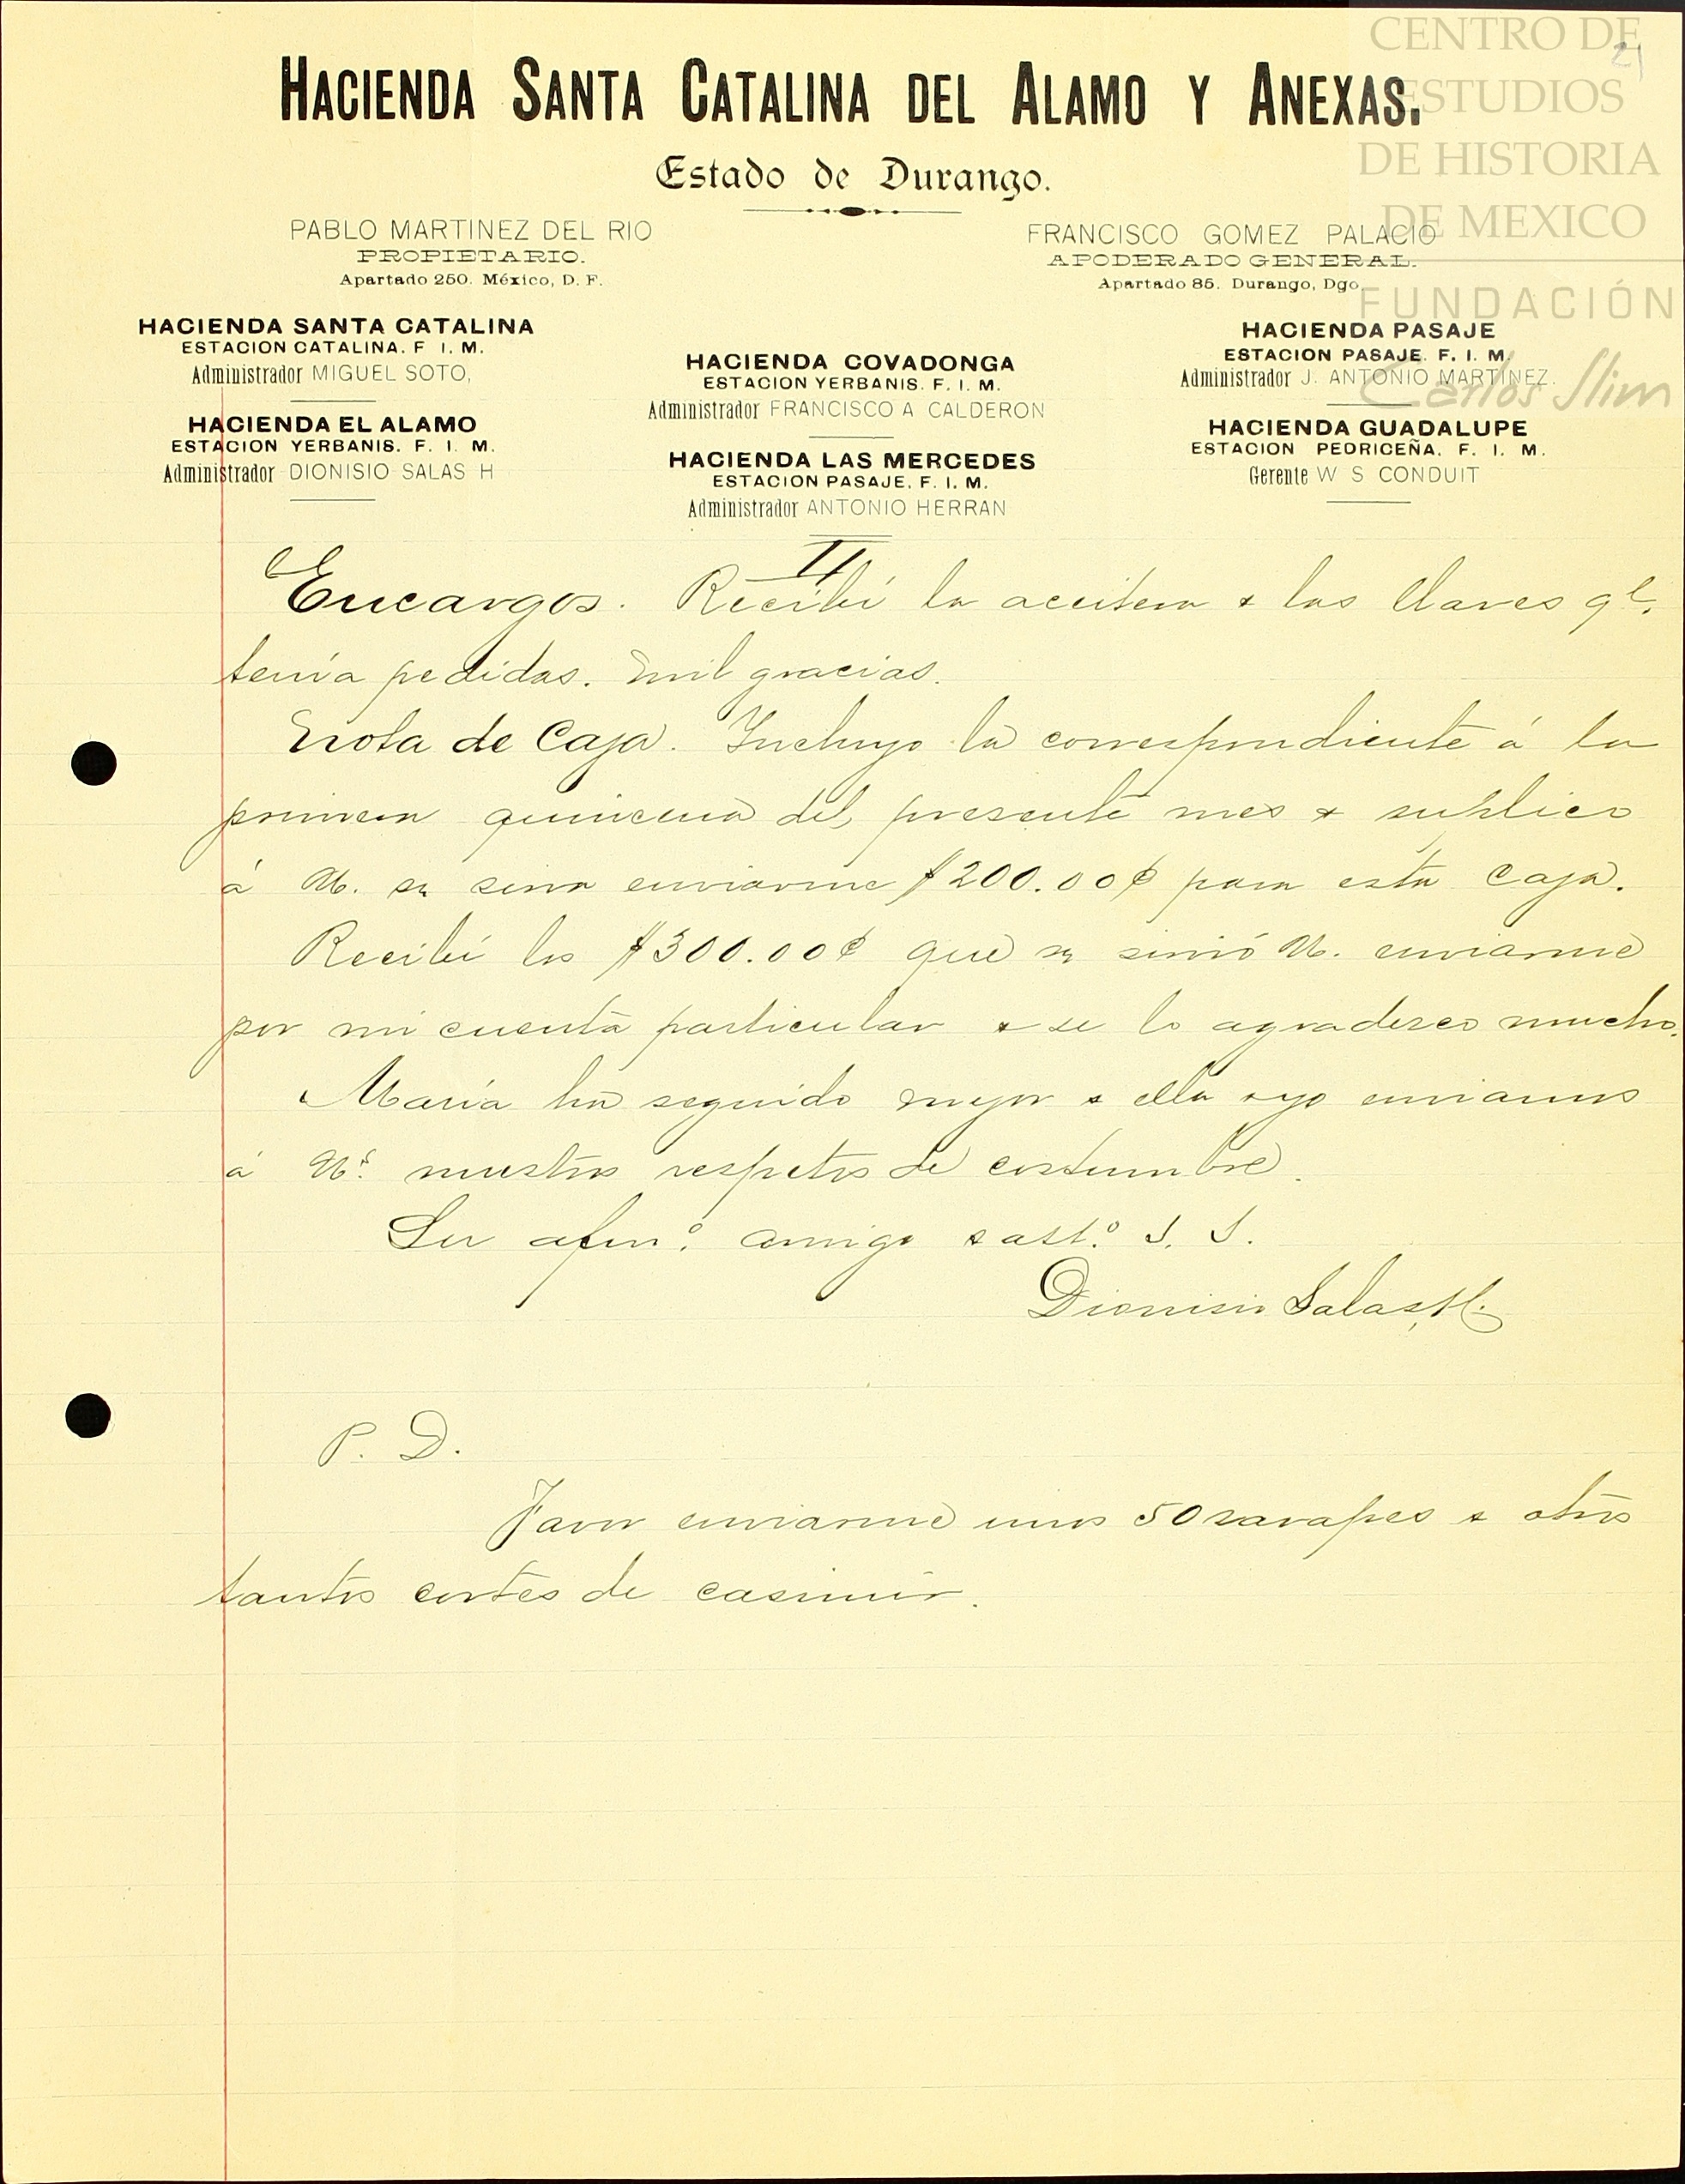 CENTRO DE
ESTUDIOS
DE HISTORIA
DE MEXICO
FUNDACIÓN
Carlos Slim
21
HACIENDA SANTA CATALINA DEL ALAMO Y ANEXAS.
Estado de Durango.
PABLO MARTINEZ DEL RIO
PROPIETARIO.
Apartado 250. México, D. F.
FRANCISCO GOMEZ PALACIO
APODERADO GENERAL.
Apartado 85. Durango, Dgo.
HACIENDA SANTA CATALINA
ESTACION CATALINA. F. I. M.
Administrador MIGUEL SOTO,
HACIENDA EL ALAMO
ESTACION YERBANIS. F. I. M.
Administrador DIONISIO SALAS H
HACIENDA COVADONGA
ESTACION YERBANIS. F. I. M.
Administrador FRANCISCO A CALDERON
HACIENDA LAS MERCEDES
ESTACION PASAJE, F. I. M.
Administrador ANTONIO HERRAN
HACIENDA PASAJE
ESTACION PASAJE. F. I. M.
Administrador J. ANTONIO MARTINEZ.
HACIENDA GUADALUPE
ESTACION PEDRICEÑA. F. I. M.
Gerente W S CONDUIT
II
Encargos. Recibí la aceitera & las llaves qe.
tenía pedidas. Mil gracias.
Nota de Caja. Incluyo la correspondiente á la
primera quincena del presente mes & suplico
á U. se sirva enviarme $200.00¢ para esta Caja.
Recibí los $300.00¢ que se sirvió U. enviarme
por mi cuenta particular & se lo agradezco mucho.
María ha seguido mejor & ella & yo enviamos
á Us. nuestros respetos de costumbre.
Su afmo. amigo & atto. S. S.
Dionisio Salas H.
P. D.
Favor enviarme unos 50 zarapes & otros
tantos cortes de casimir.